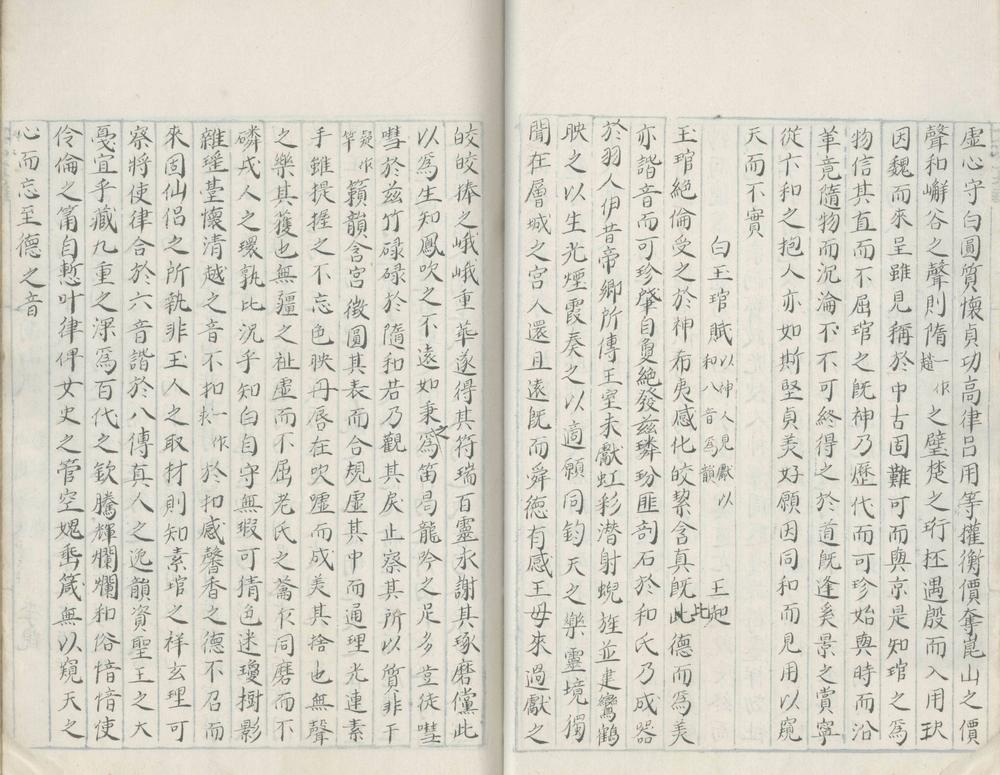 虛心守白圓質懷貞功高律呂用等權衡價奪崑山之價
聲和嶰谷之聲則隋一作趙之璧楚之珩坯遇殷而入用玦
因魏而來呈雖見稱於中古固難可而與京是知琯之為
物信其直而不屈琯之既神乃歷代而可珍始與時而沿
革竟隨物而沉淪不不可終得之於道既逢奚景之賞寧
從卞和之抱人亦如斯堅貞美好願因同和而見用以窺
天而不實
白玉琯賦以神人見獻以和八音為韻 王起
玉琯絕倫受之於神布夷感化皎絜含真既此德而為美
亦諧音而可珍肇自勇絕發茲璘玢匪剖石於和氏乃成器
於羽人伊昔帝鄉所傳王室未獻虹彩潜射蜺旌並建鸞鶴
映之以生光煙霞奏之以適願同鈞天之樂靈境獨
聞在層城之宮人還且遠既而舜德有感王母來過獻之
皎皎捧之峨峨重華遂得其符瑞百靈永謝其琢磨儻此
以為生知鳳吹之不遠如秉之為笛曷龍吟之足多豈徒嘒
嘒於茲竹碌碌於隋和若乃觀其戾止察其所以質非干
疑作竿籟韻含宮徵圓其表而合規虛其中而通理光連素
手雖提握之不忘色映丹唇在吹噓而成美其捨也無聲
之樂其獲也無疆之祉虛而不屈老氏之籥乍同磨而不
磷戎人之環孰比況乎知白自守無瑕可猜色迷瓊樹影
雜瑤臺懷清越之音不扣一作来於扣感馨香之德不召而
來固仙侶之所執非玉人之取材則知素琯之祥玄理可
察將使律合於六音諧於八傳真人之逸韻資聖王之大
戞宜乎藏九重之深為百代之欽騰輝爛爛和俗愔愔使
伶倫之籥自慙叶律俾女史之管空媿垂箴無以窺天之
心而忘至德之音